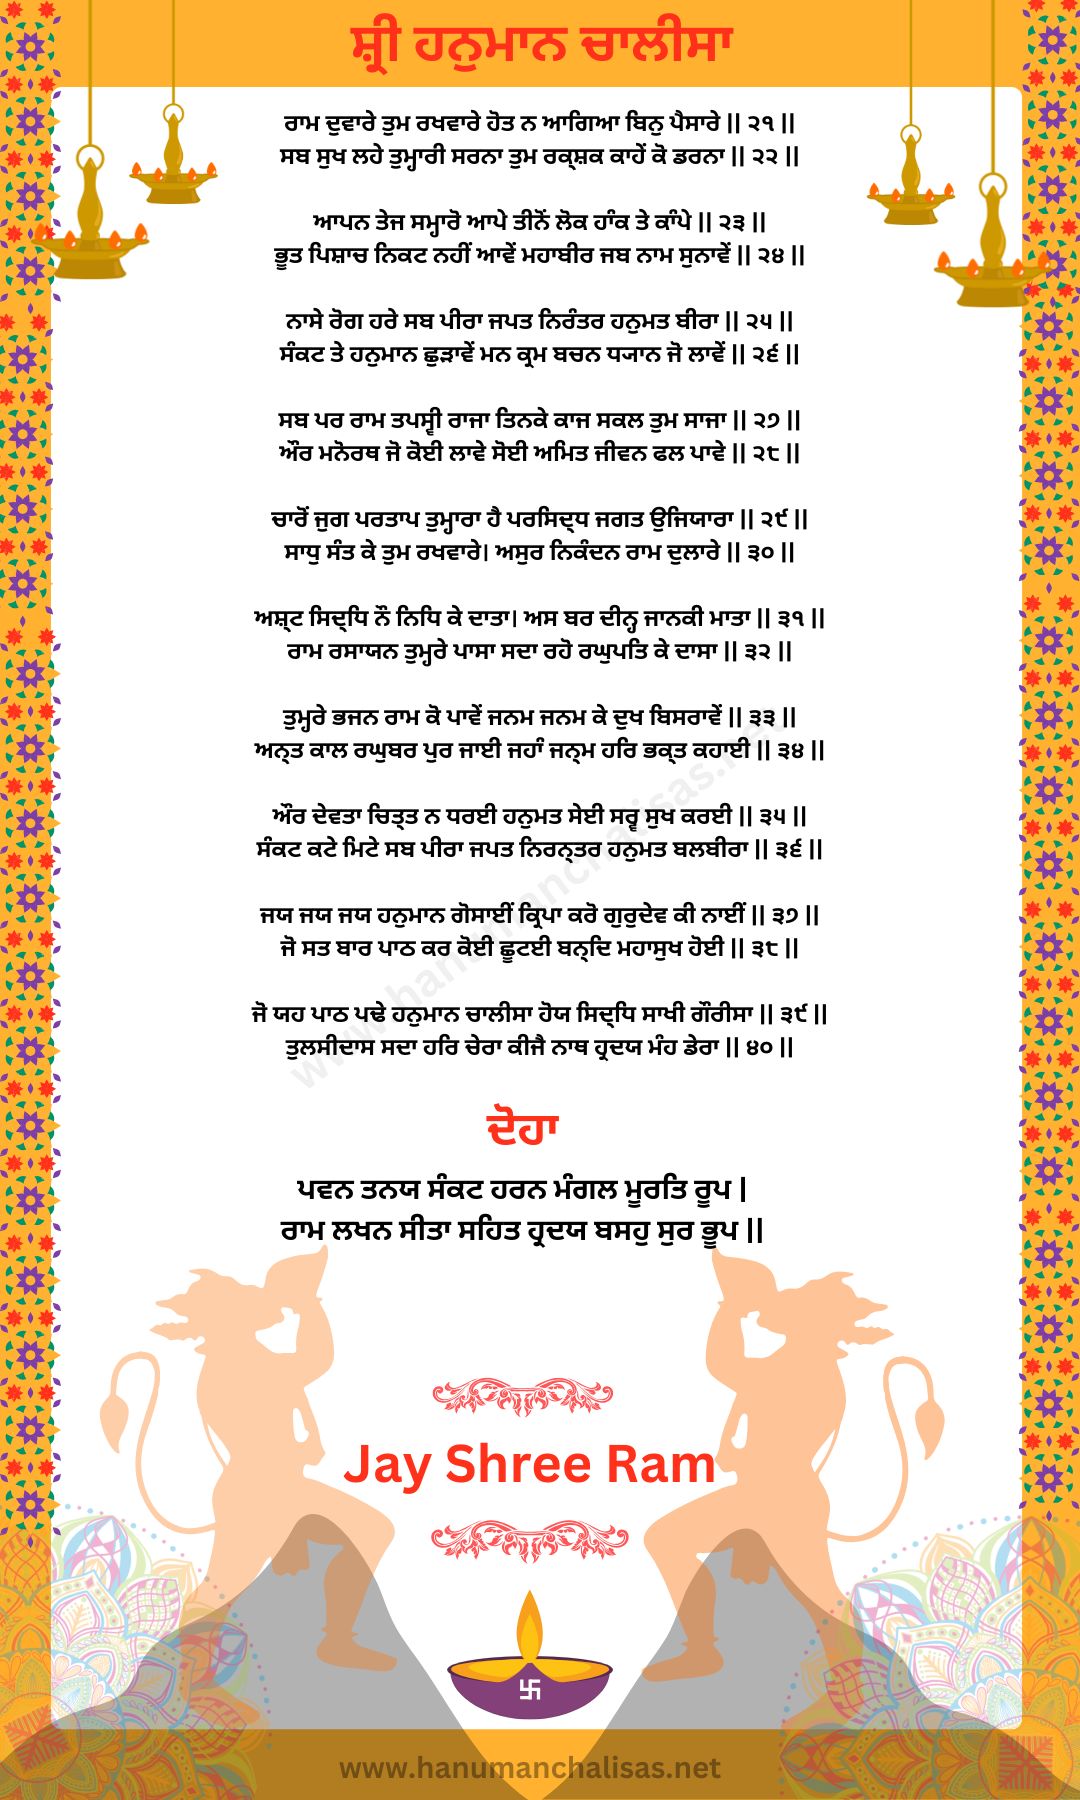 ਸ਼੍ਰੀ ਹਨੁਮਾਨ ਚਾਲੀਸਾ
ਰਾਮ ਦੁਵਾਰੇ ਤੁਮ ਰਖਵਾਰੇ ਹੋਤ ਨ ਆਗਿਆ ਬਿਨੁ ਪੈਸਾਰੇ || ੨੧ ||
ਸਬ ਸੁਖ ਲਹੇ ਤੁਮ੍ਹਾਰੀ ਸਰਨਾ ਤੁਮ ਰਕ੍ਸ਼ਕ ਕਾਹੇਂ ਕੋ ਡਰਨਾ || ੨੨ ||
ਆਪਨ ਤੇਜ ਸਮ੍ਹਾਰੋ ਆਪੇ ਤੀਨੋਂ ਲੋਕ ਹਾੰਕ ਤੇ ਕਾੰਪੇ || ੨੩ ||
ਭੂਤ ਪਿਸ਼ਾਚ ਨਿਕਟ ਨਹੀਂ ਆਵੇਂ ਮਹਾਬੀਰ ਜਬ ਨਾਮ ਸੁਨਾਵੇਂ || ੨੪ ||
ਨਾਸੇ ਰੋਗ ਹਰੇ ਸਬ ਪੀਰਾ ਜਪਤ ਨਿਰੰਤਰ ਹਨੁਮਤ ਬੀਰਾ || ੨੫ ||
ਸੰਕਟ ਤੇ ਹਨੁਮਾਨ ਛੁੜਾਵੇਂ ਮਨ ਕ੍ਰਮ ਬਚਨ ਧ੍ਯਾਨ ਜੋ ਲਾਵੇਂ || ੨੬ ||
ਸਬ ਪਰ ਰਾਮ ਤਪਸ੍ਵੀ ਰਾਜਾ ਤਿਨਕੇ ਕਾਜ ਸਕਲ ਤੁਮ ਸਾਜਾ || ੨੭ ||
ਔਰ ਮਨੋਰਥ ਜੋ ਕੋਈ ਲਾਵੇ ਸੋਈ ਅਮਿਤ ਜੀਵਨ ਫਲ ਪਾਵੇ || ੨੮ ||
ਚਾਰੋਂ ਜੁਗ ਪਰਤਾਪ ਤੁਮ੍ਹਾਰਾ ਹੈ ਪਰਸਿਦ੍ਧ ਜਗਤ ਉਜਿਯਾਰਾ || ੨੯ ||
ਸਾਧੁ ਸੰਤ ਕੇ ਤੁਮ ਰਖਵਾਰੇ। ਅਸੁਰ ਨਿਕੰਦਨ ਰਾਮ ਦੁਲਾਰੇ || ੩੦ ||
ਅਸ਼੍ਟ ਸਿਦ੍ਧਿ ਨੌ ਨਿਧਿ ਕੇ ਦਾਤਾ। ਅਸ ਬਰ ਦੀਨ੍ਹ ਜਾਨਕੀ ਮਾਤਾ || ੩੧ ||
ਰਾਮ ਰਸਾਯਨ ਤੁਮ੍ਹਰੇ ਪਾਸਾ ਸਦਾ ਰਹੋ ਰਘੁਪਤਿ ਕੇ ਦਾਸਾ || ੩੨ ||
ਤੁਮ੍ਹਰੇ ਭਜਨ ਰਾਮ ਕੋ ਪਾਵੇਂ ਜਨਮ ਜਨਮ ਕੇ ਦੁਖ ਬਿਸਰਾਵੇਂ || ੩੩ ||
ਅਨ੍ਤ ਕਾਲ ਰਘੁਬਰ ਪੁਰ ਜਾਈ ਜਹਾੰ ਜਨ੍ਮ ਹਰਿ ਭਕ੍ਤ ਕਹਾਈ || ੩੪ ||
ਔਰ ਦੇਵਤਾ ਚਿਤ੍ਤ ਨ ਧਰਈ ਹਨੁਮਤ ਸੇਈ ਸਰ੍ਵ ਸੁਖ ਕਰਈ || ੩੫ ||
ਸੰਕਟ ਕਟੇ ਮਿਟੇ ਸਬ ਪੀਰਾ ਜਪਤ ਨਿਰਨ੍ਤਰ ਹਨੁਮਤ ਬਲਬੀਰਾ || ੩੬ ||
ਜਯ ਜਯ ਜਯ ਹਨੁਮਾਨ ਗੋਸਾਈਂ ਕ੍ਰਿਪਾ ਕਰੋ ਗੁਰੁਦੇਵ ਕੀ ਨਾਈਂ || ੩੭ ||
ਜੋ ਸਤ ਬਾਰ ਪਾਠ ਕਰ ਕੋਈ ਛੂਟਈ ਬਨ੍ਦਿ ਮਹਾਸੁਖ ਹੋਈ || ੩੮ ||
ਜੋ ਯਹ ਪਾਠ ਪਢੇ ਹਨੁਮਾਨ ਚਾਲੀਸਾ ਹੋਯ ਸਿਦ੍ਧਿ ਸਾਖੀ ਗੌਰੀਸਾ || ੩੯ ||
ਤੁਲਸੀਦਾਸ ਸਦਾ ਹਰਿ ਚੇਰਾ ਕੀਜੈ ਨਾਥ ਹ੍ਰਦਯ ਮੰਹ ਡੇਰਾ || ੪੦ ||
www.hanumanchalisas.net
ਦੋਹਾ
ਪਵਨ ਤਨਯ ਸੰਕਟ ਹਰਨ ਮੰਗਲ ਮੂਰਤਿ ਰੂਪ |
ਰਾਮ ਲਖਨ ਸੀਤਾ ਸਹਿਤ ਹ੍ਰਦਯ ਬਸਹੁ ਸੁਰ ਭੂਪ ||
Jay Shree Ram
www.hanumanchalisas.net